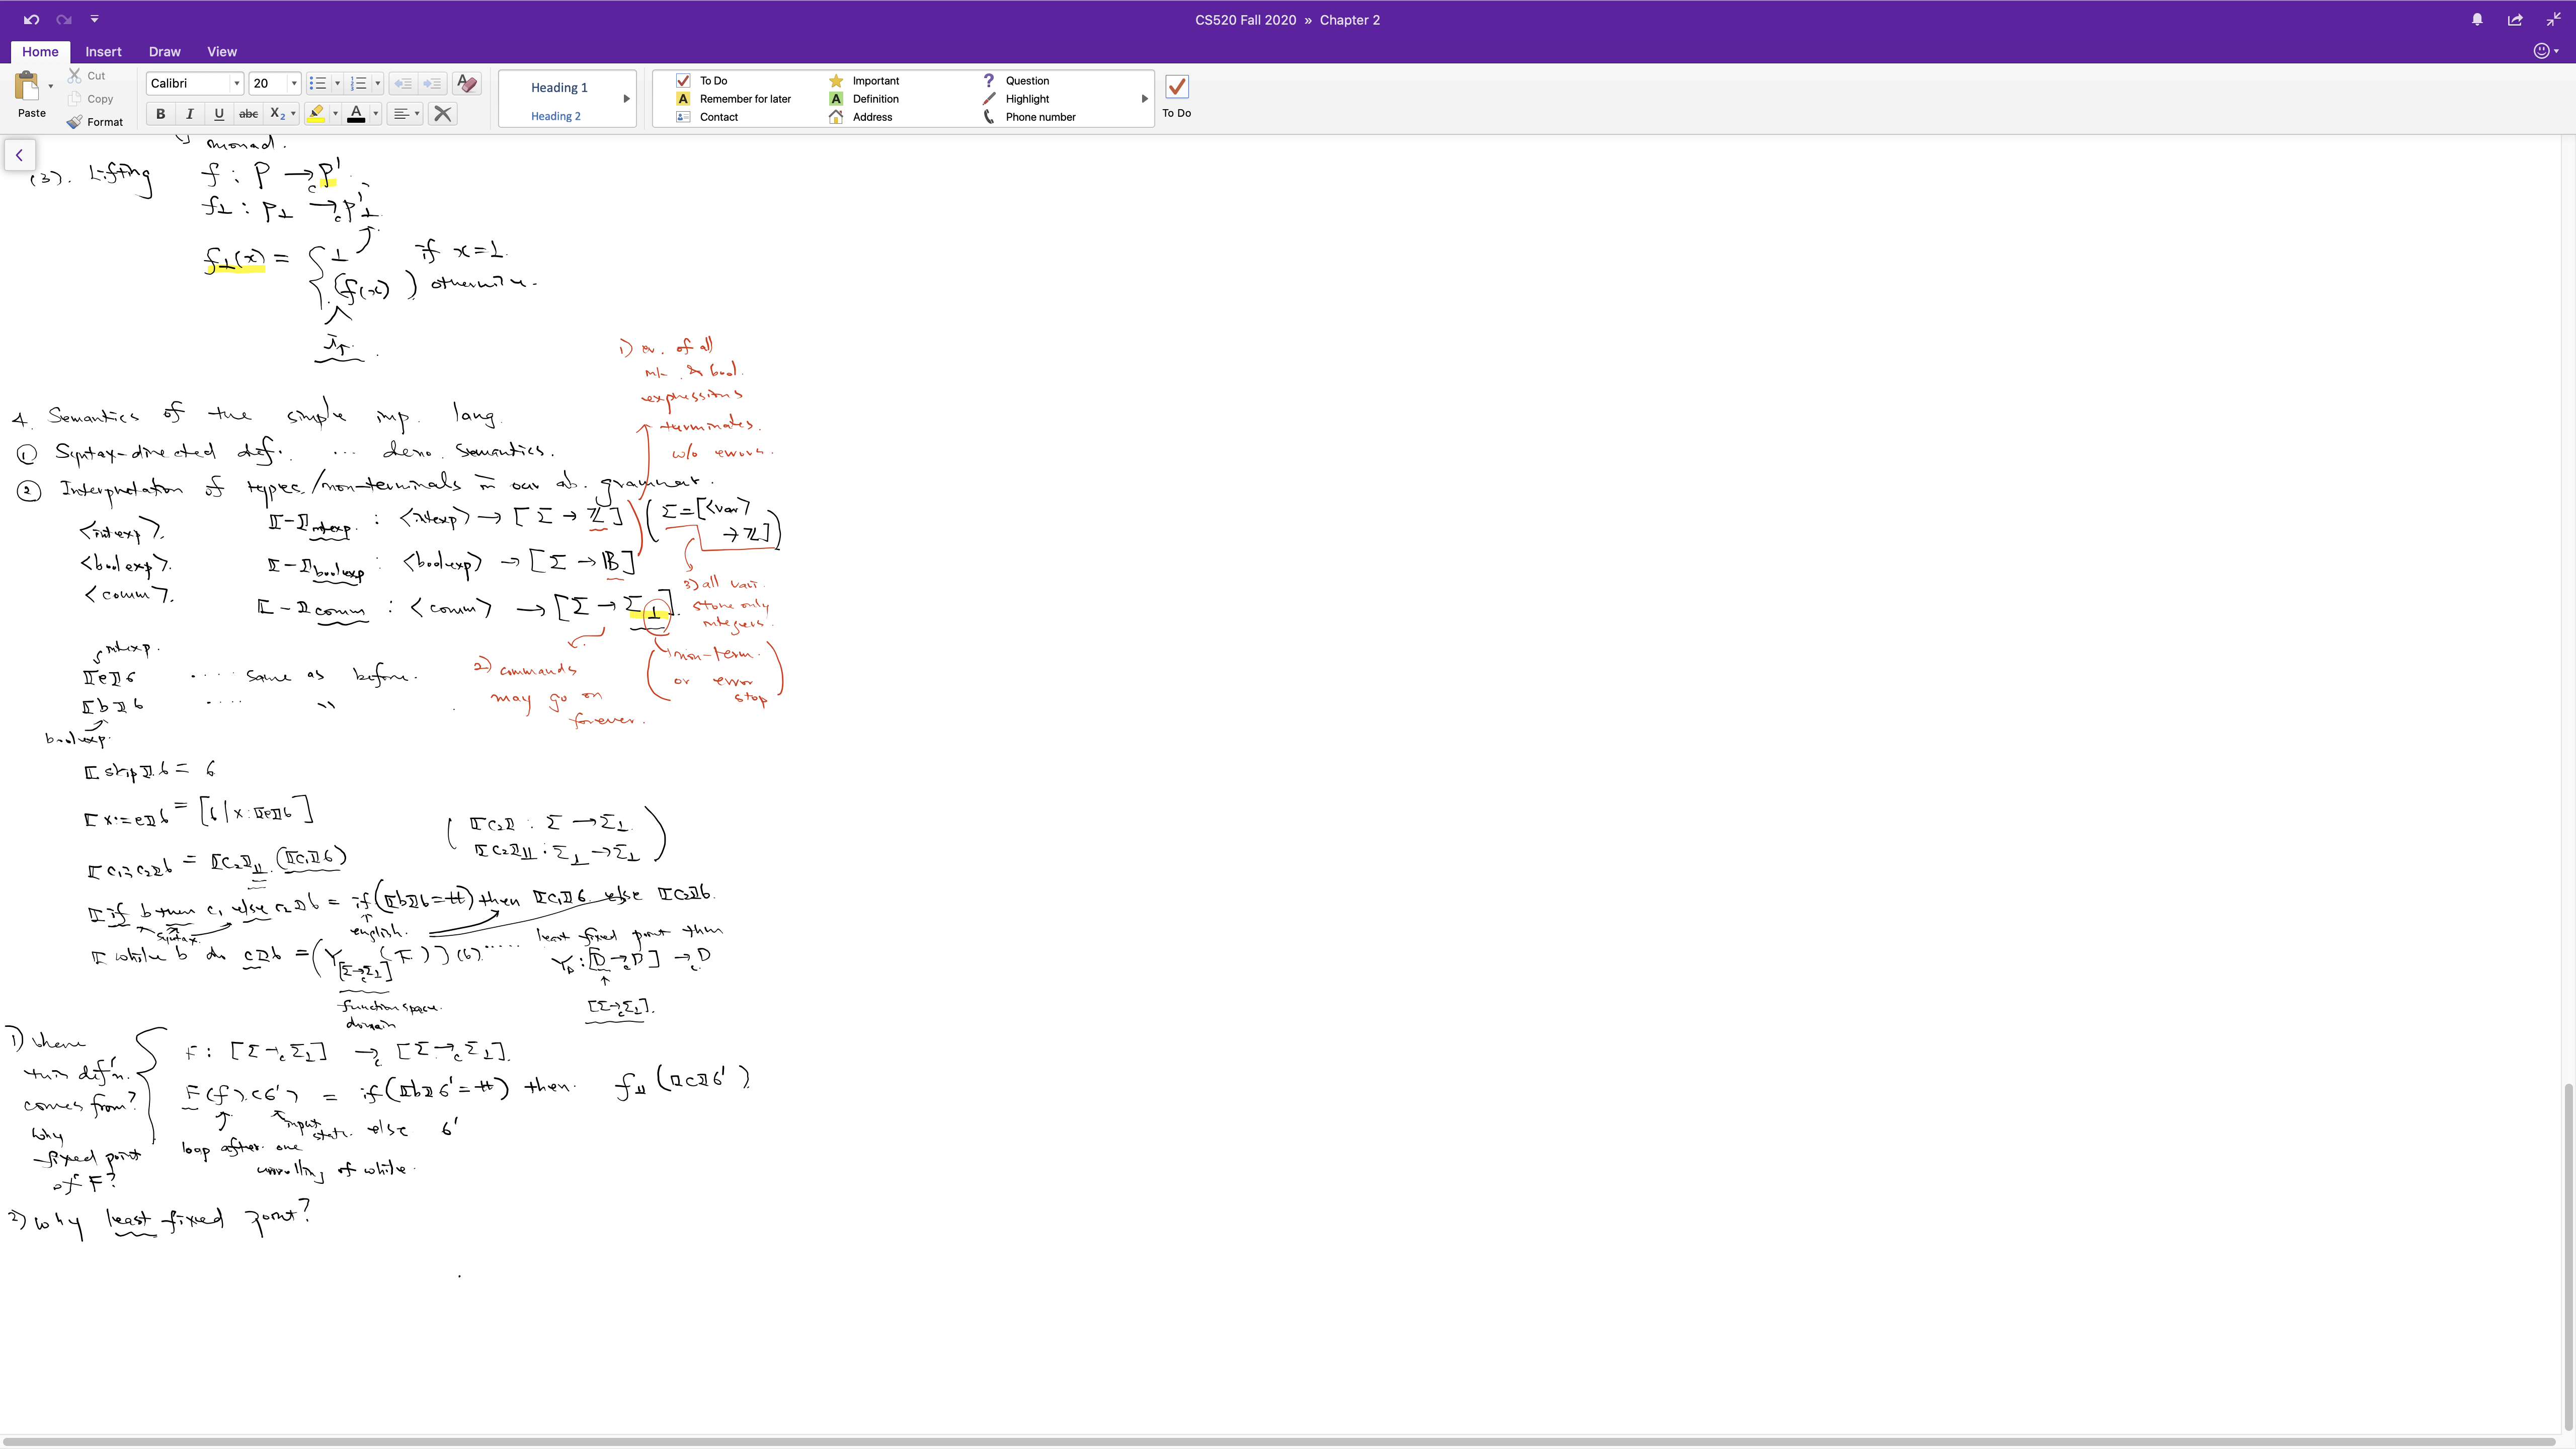 CS520 Fall 2020 » Chapter 2
Home Insert Draw View
Paste
Cut
Copy
Format
Calibri 20
B I U abc X₂ A
Heading 1
Heading 2
To Do
Remember for later
Contact
Important
Definition
Address
Question
Highlight
Phone number
To Do
monad.
(3). Lifting f : P →c P'.
f⊥ : P⊥ →c P'⊥
f⊥(x) = { ⊥ if x=⊥.
(f(x)) otherwise.
i↑.
1) ev. of all
int. & bool.
expressions
terminates.
w/o errors.
4. Semantics of the simple imp. lang.
① Syntax-directed def. ... deno. semantics.
② Interpretation of types/non-terminals in our ab. grammar.
<intexp>. ⟦-⟧intexp : <intexp> → [Σ → ℤ] (Σ = [<var> → ℤ])
<boolexp>. ⟦-⟧boolexp : <boolexp> → [Σ → 𝔹]
<comm>. ⟦-⟧comm : <comm> → [Σ → Σ⊥].
3) all var.
store only
integers.
2) commands
may go on
forever.
(non-term.
or error
stop)
intexp.
⟦e⟧σ .... same as before.
⟦b⟧σ .... "
boolexp.
⟦skip⟧σ = σ
⟦x:=e⟧σ = [σ | x:⟦e⟧σ]
(⟦c₂⟧ : Σ → Σ⊥.
⟦c₂⟧⊥⊥ : Σ⊥ → Σ⊥)
⟦c₁;c₂⟧σ = ⟦c₂⟧⊥⊥(⟦c₁⟧σ)
⟦if b then c₁ else c₂⟧σ = if (⟦b⟧σ=tt) then ⟦c₁⟧σ else ⟦c₂⟧σ.
syntax. english.
⟦while b do c⟧σ = (Y[Σ→cΣ⊥](F))(σ)..... least fixed point thm
Y_D : [D →c D] →c D
[Σ→cΣ⊥].
function space.
domain
1) where
this def'n.
comes from?
why
fixed point
of F?
F : [Σ →c Σ⊥] →c [Σ →c Σ⊥].
F(f)(σ') = if (⟦b⟧σ'=tt) then f⊥⊥(⟦c⟧σ')
else σ'
input
state.
loop after one
unrolling of while.
2) Why least fixed point?